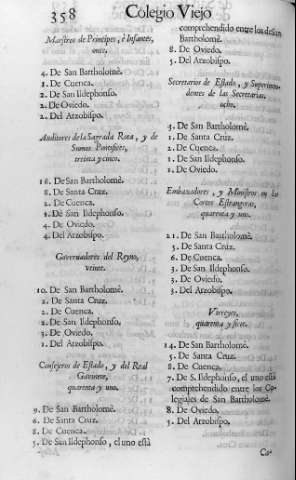 358
Colegio Viejo
Maestros de Principes, è Infantes,
once.
4. De San Bartholomè.
1. De Cuenca.
2. De San Ildephonso.
2. De Oviedo.
2. Del Arzobispo.
Auditores de la Sagrada Rota, y de
Sumos Pontifices,
treinta y cinco.
16. De San Bartholomè.
8. De Santa Cruz.
2. De Cuenca.
1. De San Ildephonso.
4. De Oviedo.
4. Del Arzobispo.
Governadores del Reyno,
veinte.
10. De San Bartholomè.
2. De Santa Cruz.
2. De Cuenca.
2. De San Ildephonso.
3. De Oviedo.
1. Del Arzobispo.
Consejeros de Estado, y del Real
Gavinete,
quarenta y uno.
9. De San Bartholomè.
6. De Santa Cruz.
8. De Cuenca.
5. De San Ildephonso, el uno està
comprehendido entre los de San
Bartholomè.
8. De Oviedo.
5. Del Arzobispo.
Secretarios de Estado, y Superinten-
dentes de las Secretarias,
ocho.
3. De San Bartholomè.
1. De Santa Cruz.
2. De Cuenca.
1. De San Ildephonso.
1. De Oviedo.
Embaxadores, y Ministros en las
Cortes Estrangeras,
quarenta y uno.
21. De San Bartholomè.
5. De Santa Cruz.
6. De Cuenca.
3. De San Ildephonso.
3. De Oviedo.
3. Del Arzobispo.
Virreyes,
quarenta y siete.
14. De San Bartholomè.
5. De Santa Cruz.
8. De Cuenca.
7. De S. Ildephonso, el uno està
comprehendido entre los Co-
legiales de San Bartholomè.
8. De Oviedo.
5. Del Arzobispo.
Co-